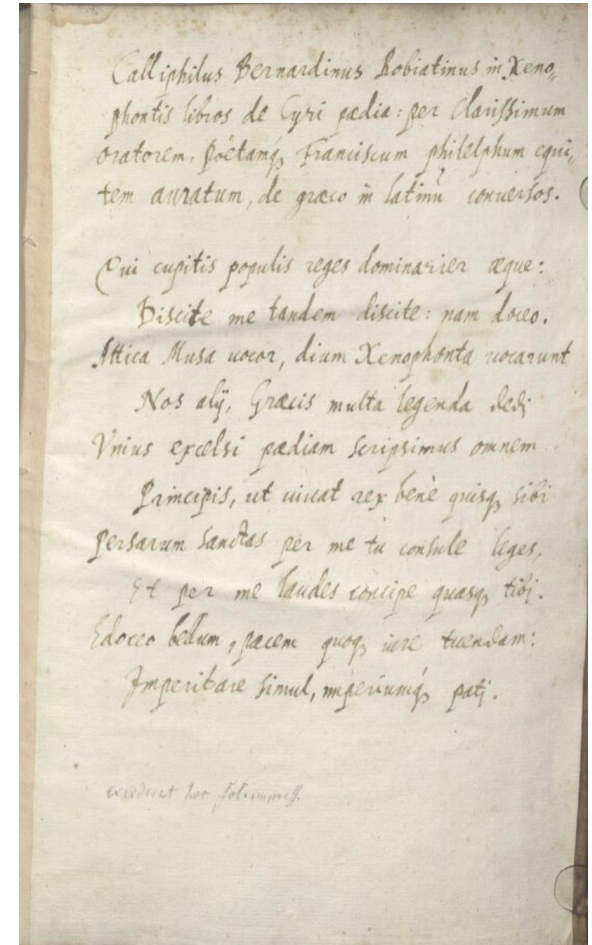 Calliphilus Bernardinus Robiatinus in Xeno„
phontis libros de Cyri pædia: per Clarissimum
oratorem, Poëtamq, Franciscum philelphum equi„
tem auratum, de græco in latinũ conuersos.
Qui cupitis populis reges dominarier æque:
Discite me tandem discite: nam doceo.
Attica Musa uocor, dium Xenophonta uocarunt
Nos alij, Græcis multa legenda dedj
Vnius excelsi pædiam scripsimus omnem
Principis, ut uiuat rex benè quisq, sibi
Persarum sanctas per me tu consule leges,
Et per me laudes concipe quasq, tibj.
Edoceo bellum, pacem quoq, iure tuendam:
Imperitare simul, imperiumq́, patj.